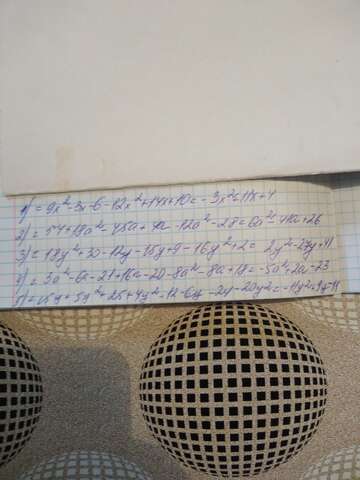 1) = 9x²-3x-6-12x²+14x+10 = -3x²+11x+4
2) = 54+18a²-45a+4a-12a²-28 = 6a²-41a+26
3) = 18y²+30-12y-15y+9-16y²+2 = 2y²-27y+41
4) = 3a²-6a-21+16a-20-8a²-8a+18 = -5a²+2a-23
5) = 15y+5y²+25+4y²-12-6y-2y-20y² =